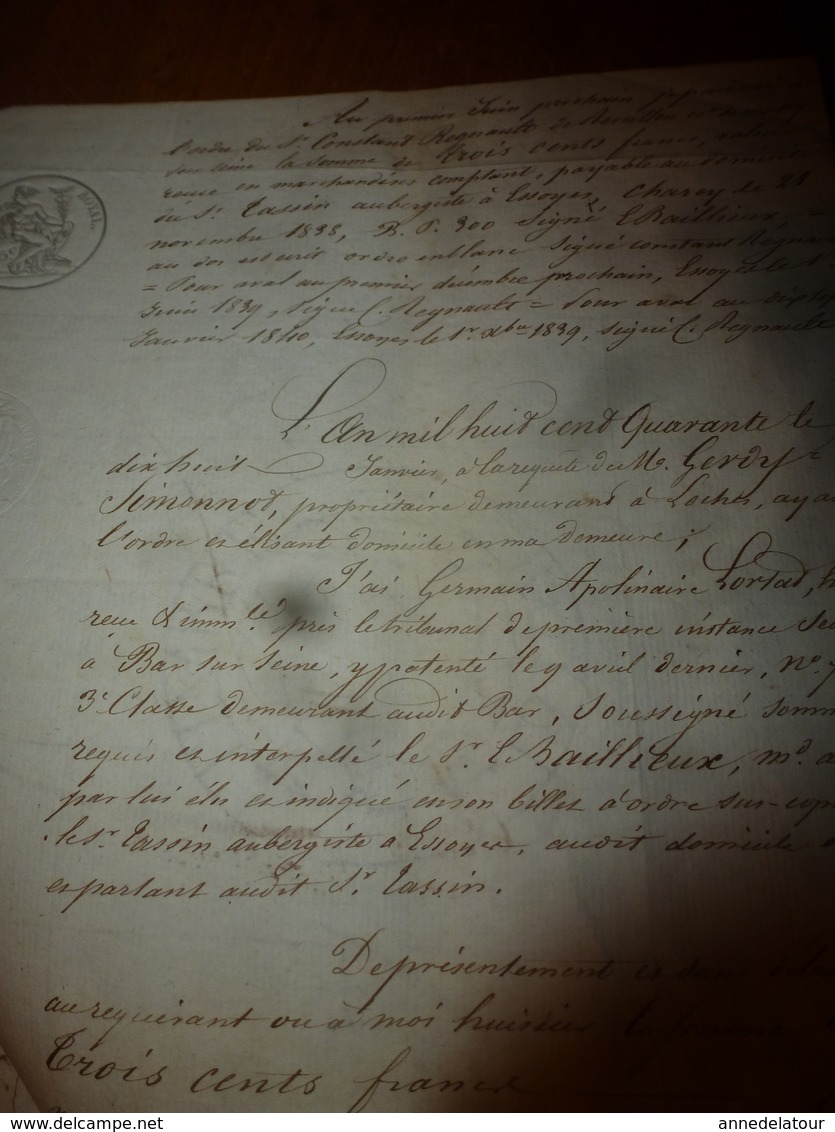 Au premier Juin prochain je paierai à
l'ordre du Sr. Constant Regnault de Neuville
sur seine la somme de trois cents francs, valeur
reçue en marchandises comptant, payable au domicile
du Sr. Tassin aubergiste à Essoyes, charey le 28
novembre 1838, B. P. 300 Signé E Baillieux, =
au dos est écrit ordre en blanc signé constant Regnault
= Pour aval au premier décembre prochain, Essoyes le 1er
Juin 1839, signé C. Regnault = Pour aval au dix sept
Janvier 1840, Essoyes le 1r. Xbre 1839, signé C. Regnault
ROYAL.
L'An mil huit cent Quarante le
dix huit Janvier, à la requête de M. Gerdy =
Simonnot, propriétaire demeurant à Loches, ayant
l'ordre et élisant domicile en ma demeure;
J'ai Germain Apolinaire Lortat,
reçu & imm.lé près le tribunal de première instance
à Bar sur seine, y patenté le 9 avril dernier, No. 7
3e. Classe demeurant audit Bar, Soussigné somme
requis et interpellé le Sr. E Baillieux, md.
par lui élu et indiqué en son billet à ordre sus-copié
le Sr. Tassin aubergiste à Essoyes, audit domicile
et parlant audit Sr. Tassin.
De présentement et sans
au requérant ou à moi huissier la somme
Trois cents francs
www.delcampe.net
annedelatour